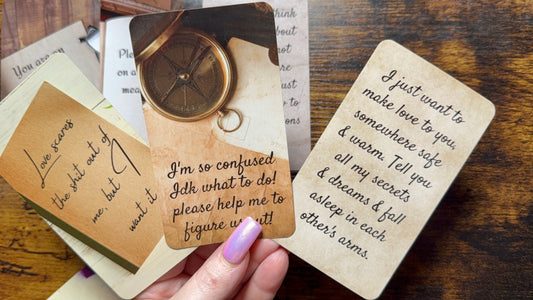 You are
Please
on a
mea
think
about
not
Love scares
the shit out of
me, but I
want it
I'm so confused
Idk what to do!
please help me to
figure us out!
I just want to
make love to you,
somewhere safe
& warm. Tell you
all my secrets
& dreams & fall
asleep in each
other's arms.